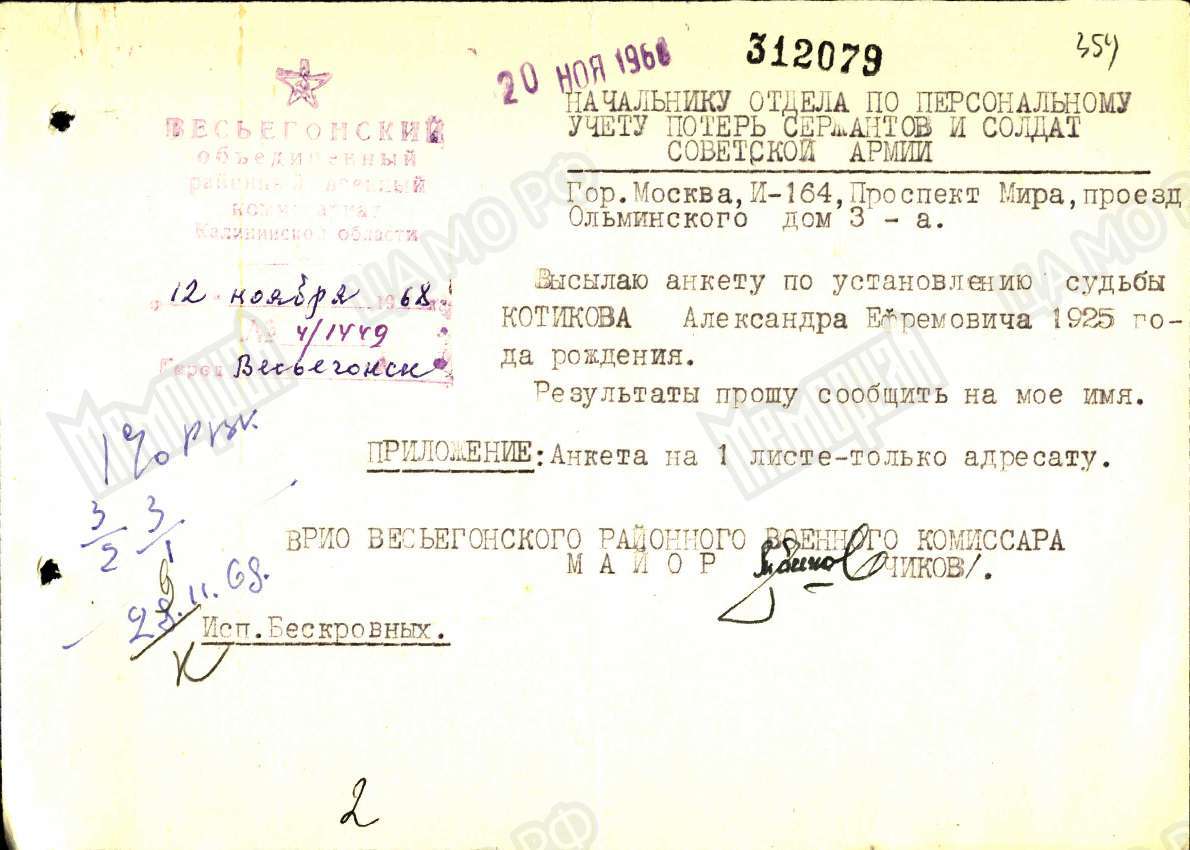 20 НОЯ 1968
312079
354
ВЕСЬЕГОНСКИЙ
объединенный
районный военный
комиссариат
Калининской области
12 ноября 1968
№ 4/1449
Город Весьегонск
НАЧАЛЬНИКУ ОТДЕЛА ПО ПЕРСОНАЛЬНОМУ
УЧЕТУ ПОТЕРЬ СЕРЖАНТОВ И СОЛДАТ
СОВЕТСКОЙ АРМИИ
Гор.Москва,И-164,Проспект Мира,проезд
Ольминского дом 3 - а.
Высылаю анкету по установлению судьбы
КОТИКОВА Александра Ефремовича 1925 го-
да рождения.
Результаты прошу сообщить на мое имя.
ПРИЛОЖЕНИЕ:Анкета на 1 листе-только адресату.
ВРИО ВЕСЬЕГОНСКОГО РАЙОННОГО ВОЕННОГО КОМИССАРА
МАЙОР ЧИКОВ/.
3/2 3/1
28.11.68.
Исп.Бескровных.
2
МЕМОРИАЛ
ЦАМО РФ
МЕМОРИАЛ
ЦАМО РФ
ЦАМО РФ